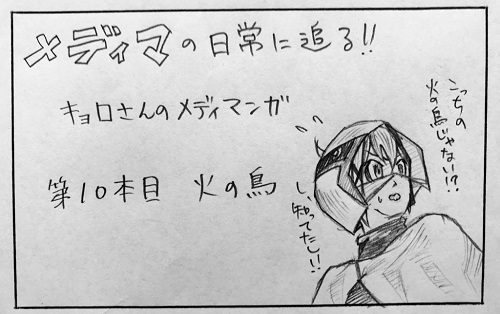 メディマの日常に追る!!
キョロさんのメディマンガ
第10本目 火の鳥
こっちの
火の鳥じゃない!?
し、知ってたし!!